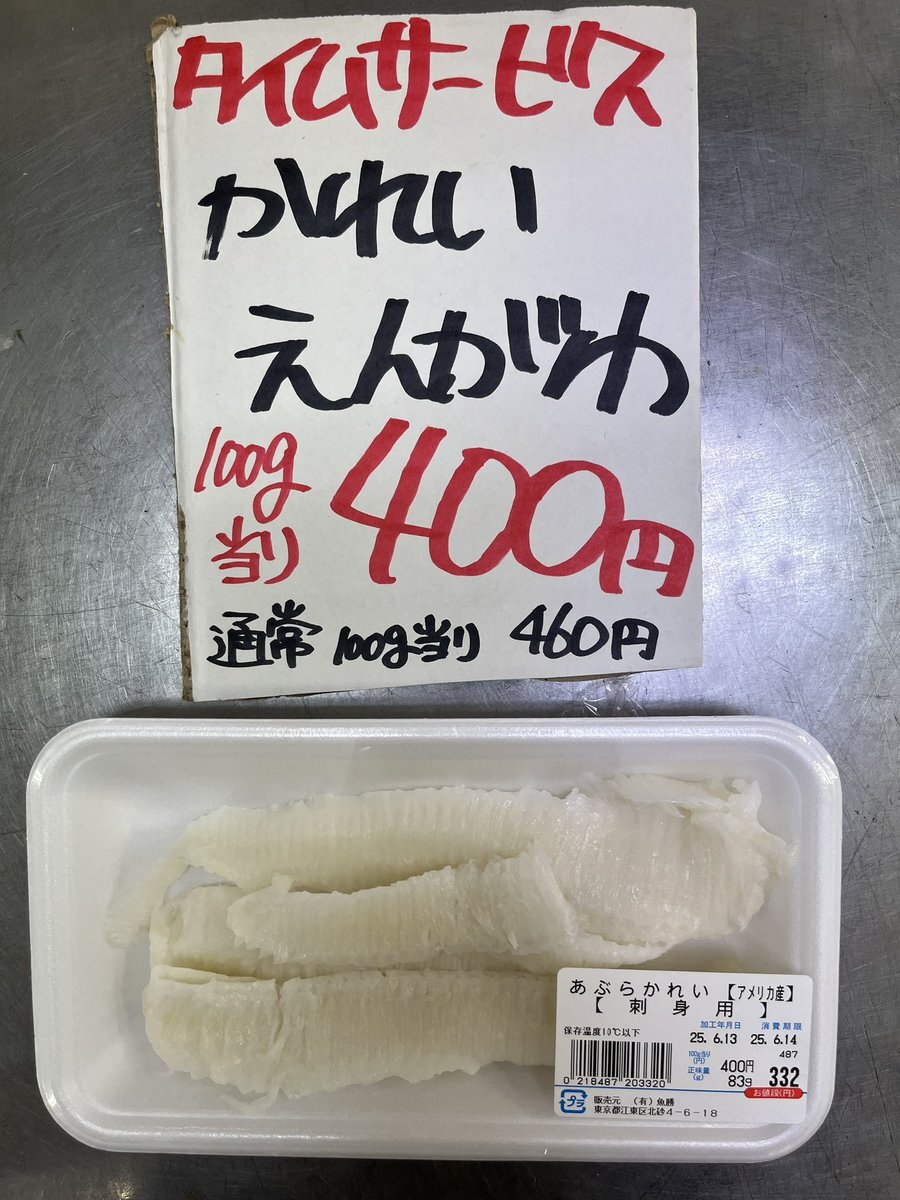 タイムサービス
かれい
えんがわ
100g
当り
400円
通常 100g当り 460円
あぶらかれい【アメリカ産】
【刺身用】
保存温度10℃以下
加工年月日 消費期限
25.6.13 25.6.14
487
100g当り(円) 400円
正味量(g) 83g 332
お値段(円)
0 218487 203320
プラ
販売元 (有)魚勝
東京都江東区北砂4-6-18